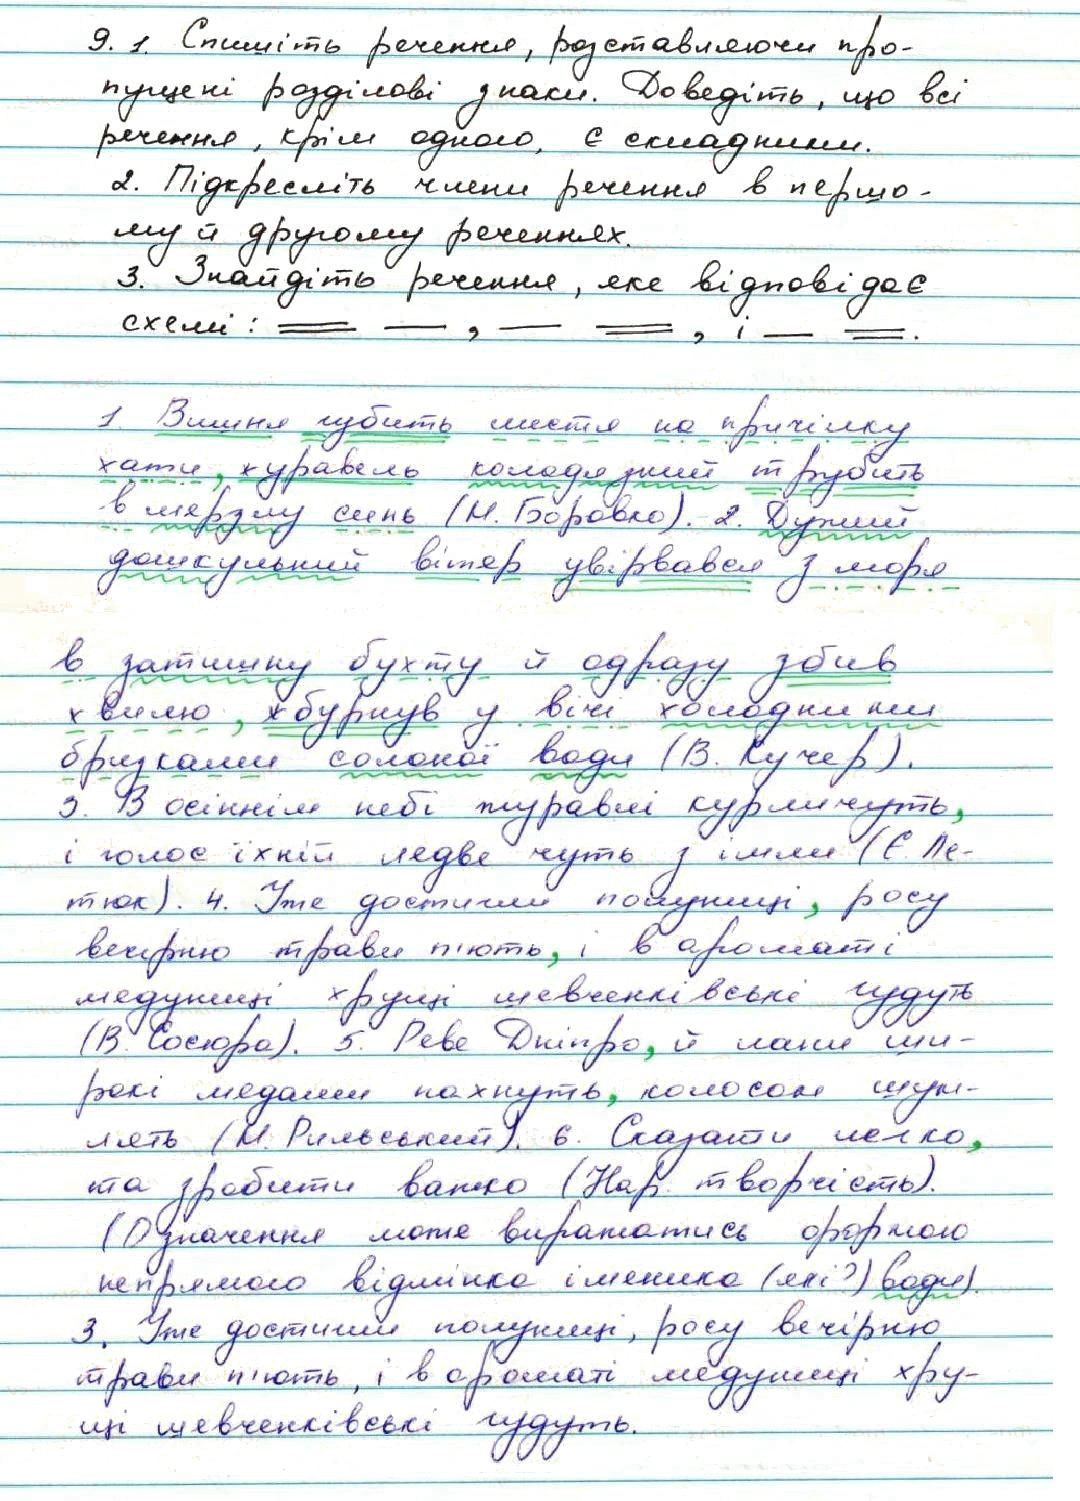 9. 1. Спишіть речення, розставляючи про-
пущені розділові знаки. Доведіть, що всі
речення, крім одного, є складними.
2. Підкресліть члени речення в першо-
му й другому реченнях.
3. Знайдіть речення, яке відповідає
схемі: , , і .
1. Вишня губить листя на причілку
хати, журавель колодязний трубить
в мерзлу синь (М. Боровко). 2. Дужий
дошкульний вітер увірвався з моря
в затишну бухту й одразу збив
хвилю, жбурнув у вічі холодними
бризками солоної води (В. Кучер).
3. В осіннім небі журавлі курличуть,
і голос їхній ледве чуть з імли (Є. Ле-
тюк). 4. Уже достигли полуниці, росу
вечірню трави п'ють, і в ароматі
медуниці хрущі шевченківські гудуть
(В. Сосюра). 5. Реве Дніпро, й лани ши-
рокі медами пахнуть, колосом шум-
лять (М. Рильський). 6. Сказати легко,
та зробити важко (Нар. творчість).
(Означення може виражатись формою
непрямого відмінка іменика (які?) води).
3. Уже достигли полуниці, росу вечірню
трави п'ють, і в ароматі медуниці хру-
щі шевченківські гудуть.